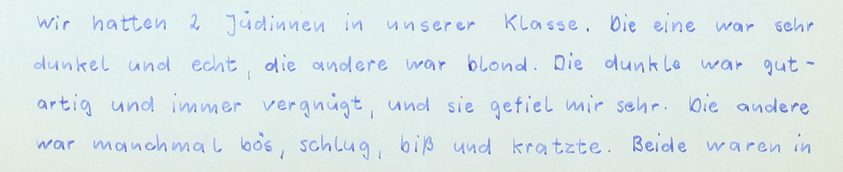 Wir hatten 2 Jüdinnen in unserer Klasse. Die eine war sehr
dunkel und echt, die andere war blond. Die dunkle war gut-
artig und immer vergnügt, und sie gefiel mir sehr. Die andere
war manchmal bös, schlug, biß und kratzte. Beide waren in